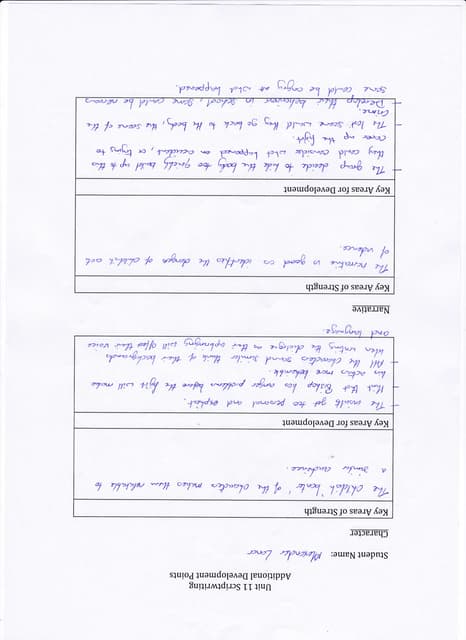 Unit 11 Scriptwriting
Additional Development Points
Student Name: Alexander
Character
Key Areas of Strength
The childish 'banter' of the characters makes them relatable to
a similar audience.
Key Areas for Development
- The insults get too personal and explicit.
- Hint that Bishop has anger problems before the fight will make
his actions more believable.
- All the characters sound similar think of their backgrounds
when writing the dialogue as their upbringing will affect their voice
and language.
Narrative
Key Areas of Strength
The narrative is good as identifies the danger of childish acts
of violence.
Key Areas for Development
- The group decide to hide the body too quickly build up to this
they could consider what happened an accident, or trying to
cover up the fight.
- The last scene would they go back to the body, the scene of the
crime.
- Develop their behaviour in school, some could be nervous
some could be angry at what happened.